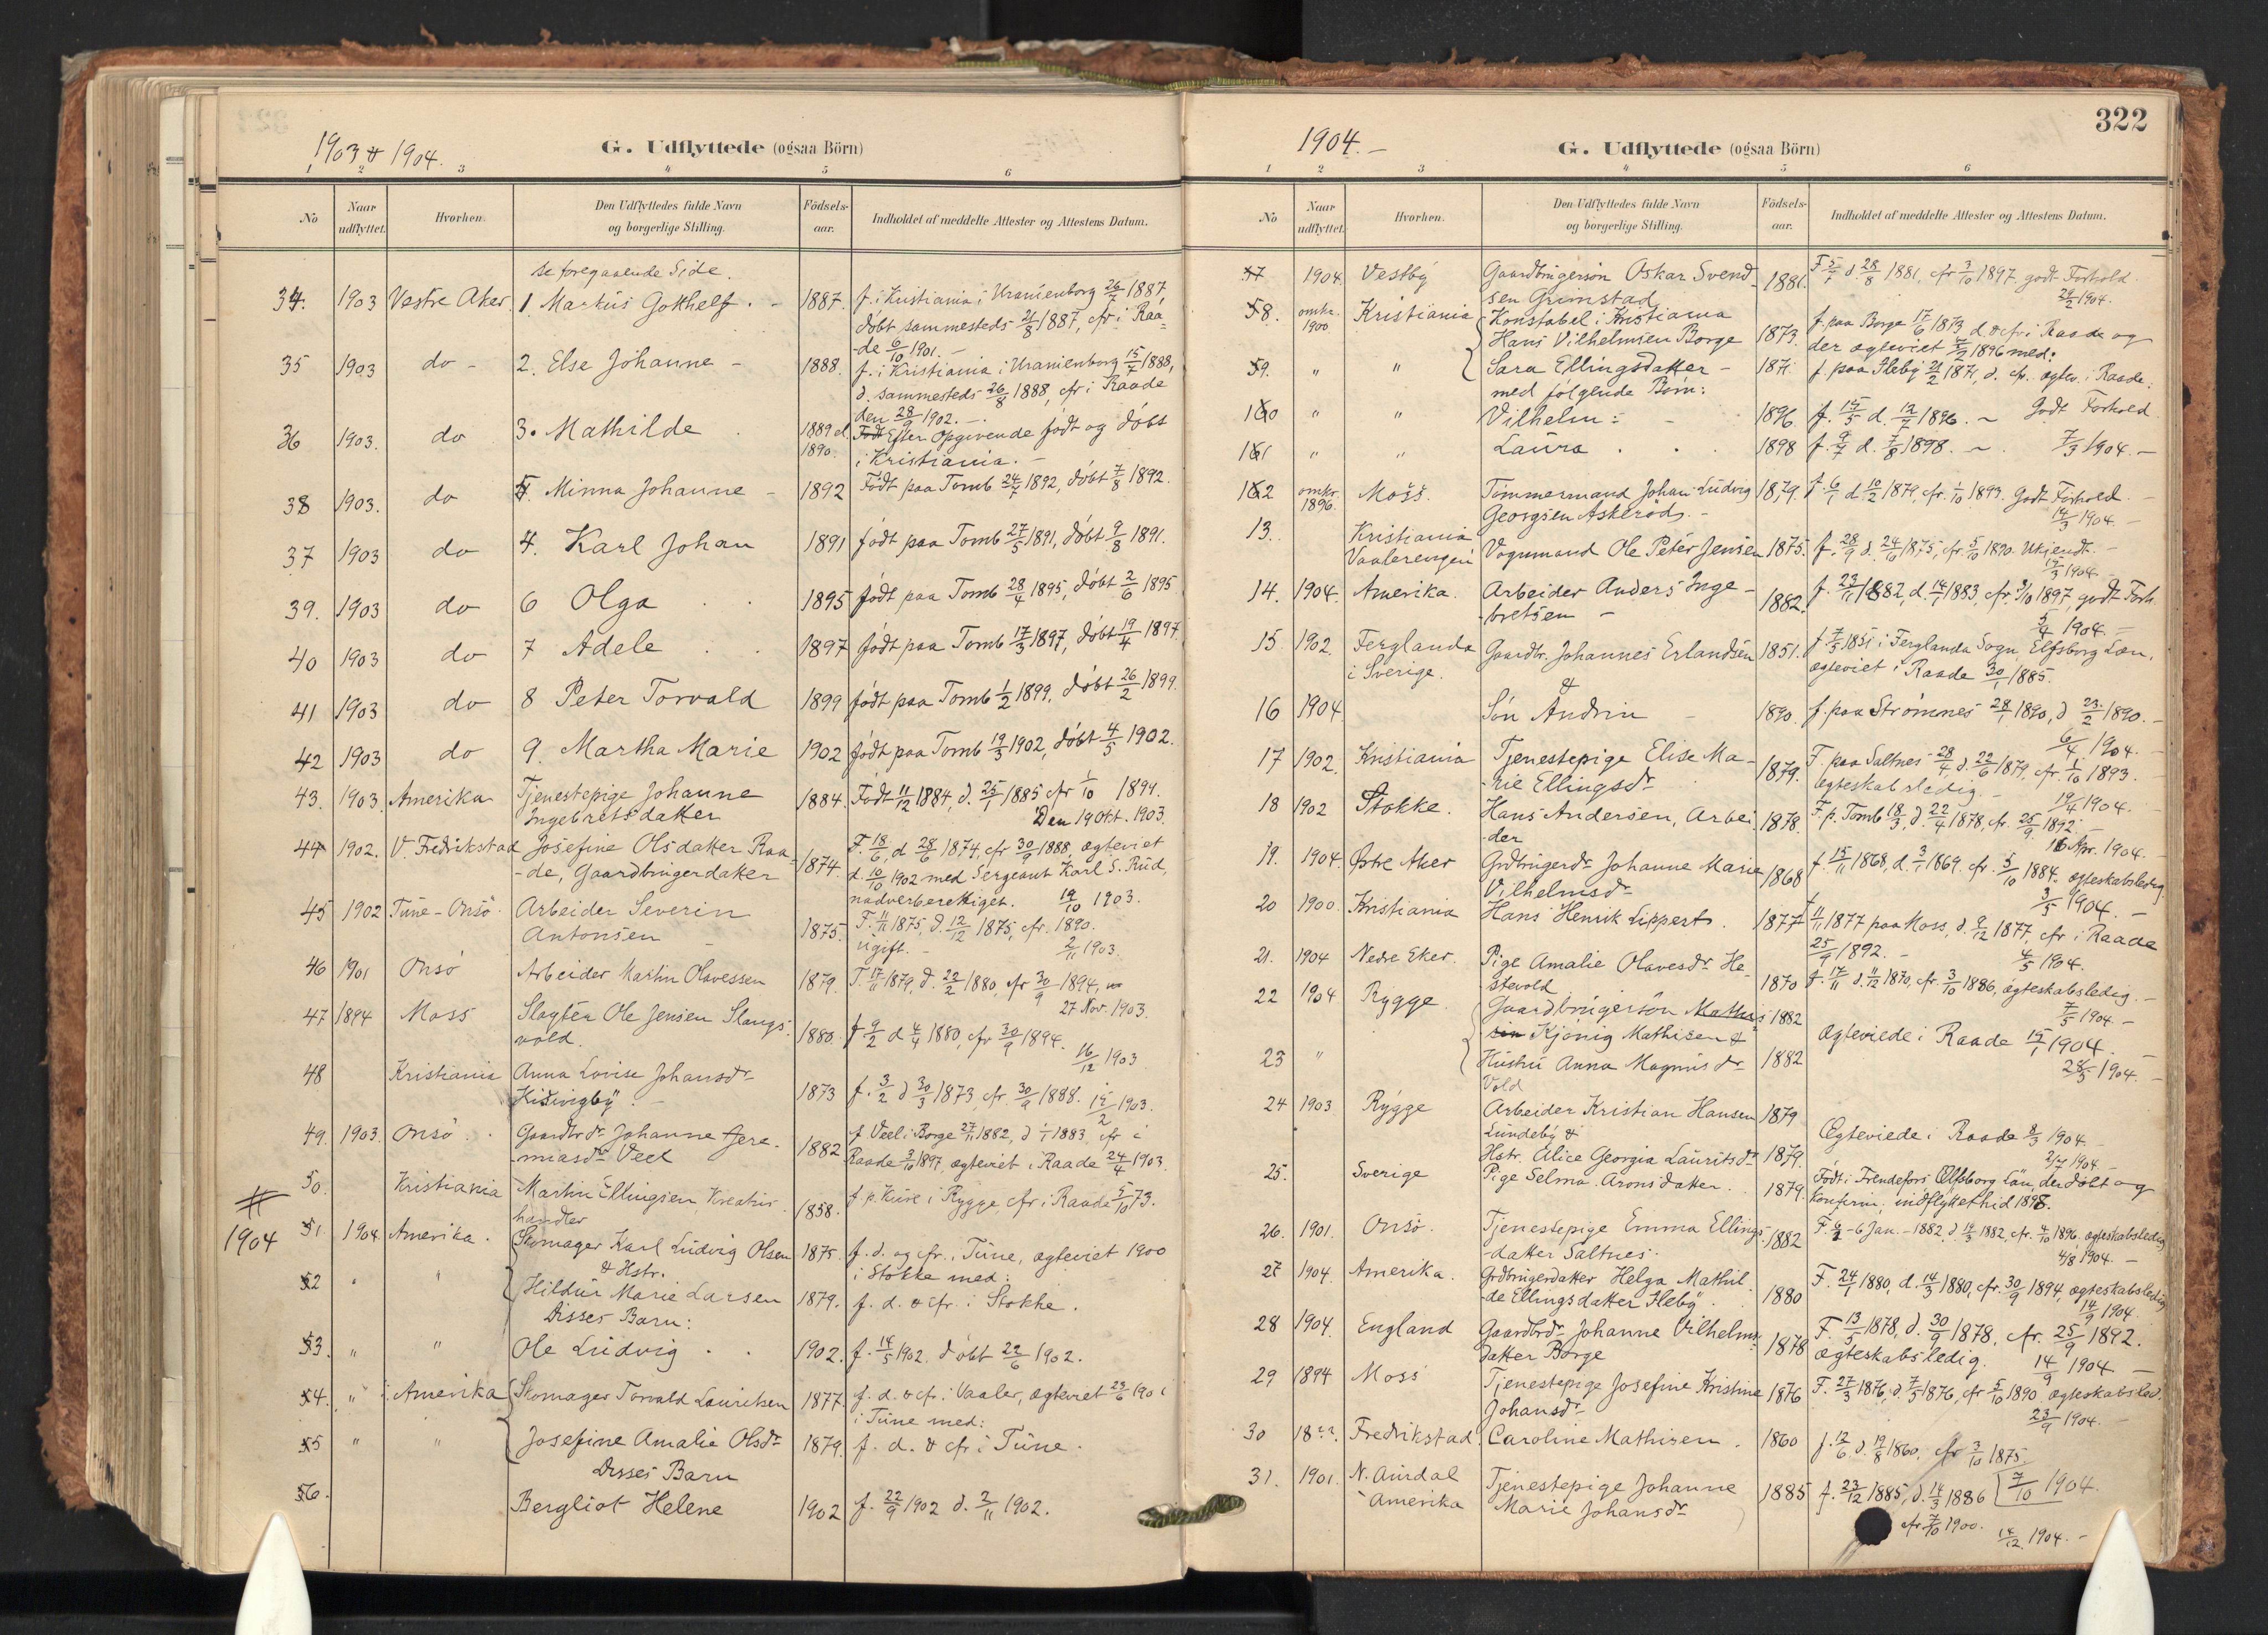 1903 & 1904.
G. Udflyttede (ogsaa Börn)
1 2 3 4 5 6
No
Naar udflyttet.
Hvorhen.
Den Udflyttedes fulde Navn og borgerlige Stilling.
Födsels-aar.
Indholdet af meddelte Attester og Attestens Datum.
se foregaaende Side.
34. 1903 Vestre Aker. 1. Markus Gotthelf. - 1887. f. i Kristiania i Uranienborg 26/7 1887,
døbt sammesteds 21/8 1887, cfr i Raa-
de 6/10 1901. -
35 1903 do - 2. Else Johanne - 1888. f. i Kristiania i Uranienborg 15/7 1888,
d. sammesteds 26/8 1888, cfr i Raade
den 28/9 1902. -
36 1903. do 3. Mathilde 1889 el. 1890. Efter Opgivende født og døbt
i Kristiania. -
38 1903. do 5. Minna Johanne - 1892 Født paa Tomb 24/7 1892, døbt 7/8 1892.
37 1903 do 4. Karl Johan 1891 født paa Tomb 27/5 1891, døbt 9/8 1891.
39. 1903 do 6 Olga 1895 født paa Tomb 28/4 1895, døbt 2/6 1895
40 1903 do 7 Adele 1897 født paa Tomb 17/3 1897, døbt 19/4 1897.
41 1903 do 8 Peter Torvald 1899 født paa Tomb 1/2 1899, døbt 26/2 1899.
42 1903 do 9. Martha Marie 1902 født paa Tomb 19/3 1902, døbt 4/5 1902.
43. 1903 Amerika Tjenestepige Johanne 1884. Født 11/12 1884, d. 25/1 1885 cfr 1/10 1899.
Ingebretsdatter Den 19 Okt. 1903.
44 1902. V. Fredrikstad Josefine Olsdatter Raa- 1874. F. 18/6, d 28/6 1874, cfr 30/9 1888 ægteviet
-de, Gaardbrugerdatter d. 10/10 1902 med Sergeant Karl S. Rud,
nadverberettiget. 19/10 1903.
45 1902 Tune-Onsö Arbeider Severin 1875. F. 11/11 1875, d. 12/12 1875, cfr. 1890.
Antonsen - ugift. - 2/11 1903.
46 1901 Onsö Arbeider Martin Olavessen 1879. F. 17/11 1879, d. 22/2 1880, cfr 30/9 1894,
27 Nov. 1903.
47 1894 Moss Slagter Ole Jensen Slangs- 1880. f 9/2 d 4/4 1880, cfr 30/9 1894.
vold. 16/12 1903
48 Kristiania Anna Lovise Johansdr 1873 f. 3/2 d 30/3 1873, cfr. 30/9 1888.
49. 1903. Onsö. Gaardbrdr. Johanne Jere- 1882 f. Veel i Borge 27/11 1882, d 1/1 1883, cfr i
-miasdr. Veel Raade 3/10 1897, ægteviet i Raade 24/4 1903.
50. Kristiania Martin Ellingsen, Kreatur- 1858. f. p. Kure i Rygge, cfr i Raade 5/10 73.
handler
1904
51 1904. Amerika. Skomager Karl Ludvig Olsen 1875. f. d. og cfr. i Tune, ægteviet 1900
& Hstr. i Stokke med:
52 " " Hildur Marie Larsen 1879. f. d. & cfr. i Stokke.
Disses Barn:
53. " " Ole Ludvig 1902. f. 14/5 1902. døbt 22/6 1902.
54. " Amerika Skomager Torvald Lauritsen 1877. f. d. & cfr. i Vaaler, ægteviet 23/6 1901
i Tune med:
55 " " Josefine Amalie Olsdr 1879. f. d. & cfr i Tune.
Disses Barn
56. Bergliot Helene 1902 f. 22/9 1902 d. 2/11 1902.
322
1904. -
G. Udflyttede (ogsaa Börn)
1 2 3 4 5 6
No
Naar udflyttet.
Hvorhen.
Den Udflyttedes fulde Navn og borgerlige Stilling.
Födsels-aar.
Indholdet af meddelte Attester og Attestens Datum.
1904. Vestby Gaardbrugersön Oskar Svend- 1881. F 5/7 d. 28/8 1881, cfr 3/10 1897. godt Forhold.
sen Grimstad 24/2 1904.
8. omkr. 1900 Kristiania Konstabel i Kristiania
Hans Vilhelmsen Borge 1873. f. paa Borge 17/6 1873 d. & cfr i Raade og
der ægteviet 7/2 1896 med:
9. " " Sara Ellingsdatter - 1871. f. paa Heby 21/2 1871, d. cfr. ægtev. i Raade.
med følgende Børn:
10 " " Vilhelm: - 1896. f. 15/5 d. 12/7 1896. ~ Godt Forhold
11 " " Laura 1898 f. 9/7 d. 7/8 1898. ~. 7/3 1904. -
12 omkr. 1896. Moss. Tømmermand Johan Ludvig 1879. f. 6/1 d. 10/2 1879, cfr. 1/10 1893. Godt Forhold. -
Georgsen Askerød. - 14/3 1904. -
13. Kristiania Vaalerengen Vognmand Ole Peter Jensen 1875. f. 28/9 d. 24/10 1875, cfr. 5/10 1890. Ukjendt. -
14. 1904. Amerika. Arbeider Anders Inge- 1882. f. 23/11 1882, d. 14/1 1883, cfr. 3/10 1897, godt Forh.
-bretsen - 5/4 1904. -
15 1902. Ferglanda Gaardbr. Johannes Erlandsen 1851. f. 7/5 1851 i Ferglanda Sogn Elfsborg Læn,
i Sverige. & ægteviet i Raade 30/1 1885.
16 1904. Sön Andrin - 1890. f. paa Strømnes 28/1 1890, d 23/2 1890. -
6/4 1904. -
17 1902. Kristiania Tjenestepige Elise Ma- 1879. F. paa Saltnes 28/4 d. 22/6 1879, cfr. 1/10 1893. -
-rie Ellingsdr ægteskabsledig. - 19/4 1904. -
18 1902 Stokke. Hans Andersen, Arbei- 1878. F. p. Tomb 18/3, d. 22/4 1878, cfr. 25/9 1892. -
-der 16 Apr. 1904. -
19. 1904. Østre Aker Grdbrugerdr. Johanne Marie 1868 f. 15/11 1868, d. 3/1 1869, cfr. 5/10 1884. ægteskabsledig
Vilhelmsdr 3/5 1904. -
20 1900. Kristiania Hans Henrik Lippert. 1877 f 11/11 1877 paa Moss, d. 9/12 1877, cfr i Raade
25/9 1892. - 4/5 1904.
21. 1904 Nedre Eker. Pige Amalie Olavesdr. He- 1870 f. 17/11 d. 11/12 1870, cfr. 3/10 1886, ægteskabsledig. -
stevold 7/5 1904. -
22 1904 Rygge Gaardbrugersön 1882
Kjönig Mathisen & Ægteviede i Raade 15/1 1904. -
23 " Hustru Anna Magnusdr 1882 28/5 1904. -
Vold
24 1903 Rygge Arbeider Kristian Hansen 1879
Lundeby & Ægteviede i Raade 8/3 1904 -
Hstr. Alice Georgia Lauritsdr 1879. 2/7 1904. -
25. Sverige Pige Selma Aronsdatter. 1879. Født i Frendefors Elfsborg Län, der døbt og
konfirm., indflyttet hid 1898.
26. 1901. Onsö. Tjenestepige Emma Ellings- 1882 F. - 6 Jan. - 1882, d 14/3 1882, cfr. 4/10 1896. ægteskabsledig
-datter Saltnes. 4/8 1904. -
27 1904. Amerika. Grdbrugerdatter Helga Mathil- 1880 F. 24/1 1880, d. 14/3 1880, cfr. 30/9 1894, ægteskabsledig
-de Ellingsdatter Heby. 14/9 1904.
28 1904. England Gaardbrdr. Johanne Vilhelms- 1878 F. 13/5 1878, d. 30/9 1878, cfr. 25/9 1892.
datter Borge ægteskabsledig. 14/9 1904 -
29 1894 Moss Tjenestepige Josefine Kristine 1876 F. 27/3 1876, d. 7/5 1876, cfr 5/10 1890, ægteskabsled.
Johansdr 23/9 1904. -
30 18?? Fredrikstad. Caroline Mathisen. 1860 f. 12/6 d. 19/8 1860, cfr 3/10 1875.
7/10 1904.
31. 1901. N. Audal Tjenestepige Johanne 1885 f. 23/12 1885, d. 14/3 1886
Amerika Marie Johansdr cfr. 7/10 1900. 14/12 1904. -